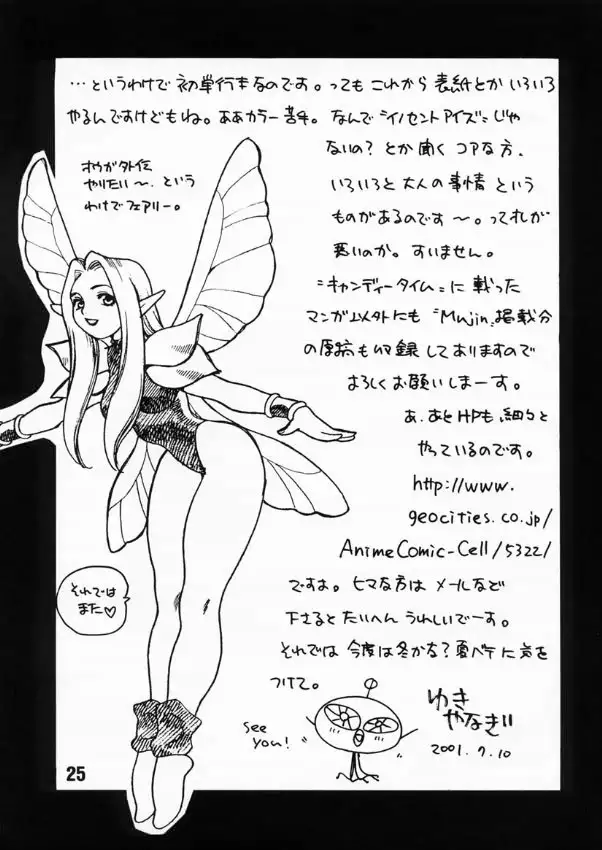 …というわけで初単行本なのです。っても これから 表紙とか いろいろ
やるんですけどもね。ああカラー苦手。なんで"イノセントアイズ"じゃ
ないの？とか聞く コアな方、
いろいろと 大人の事情 という
ものがあるのです〜。ってそれが
悪いのか。すいません。
"キャンディータイム"に 載った
マンガ以外にも "Mujin"掲載分
の原稿も収録 してありますので
よろしく お願いしまーす。
あ、あとHPも、細々と
やっているのです。
http://www.
geocities.co.jp/
AnimeComic-Cell/5322/
ですよ。ヒマな方は メールなど
下さると たいへん うれしいでーす。
それでは 今度は冬かな？夏バテに気を
つけて。
オウガ外伝
やりたい〜、という
わけでフェアリー。
それでは
また♡
see
you!
ゆき
やなぎ
2001.7.10
25